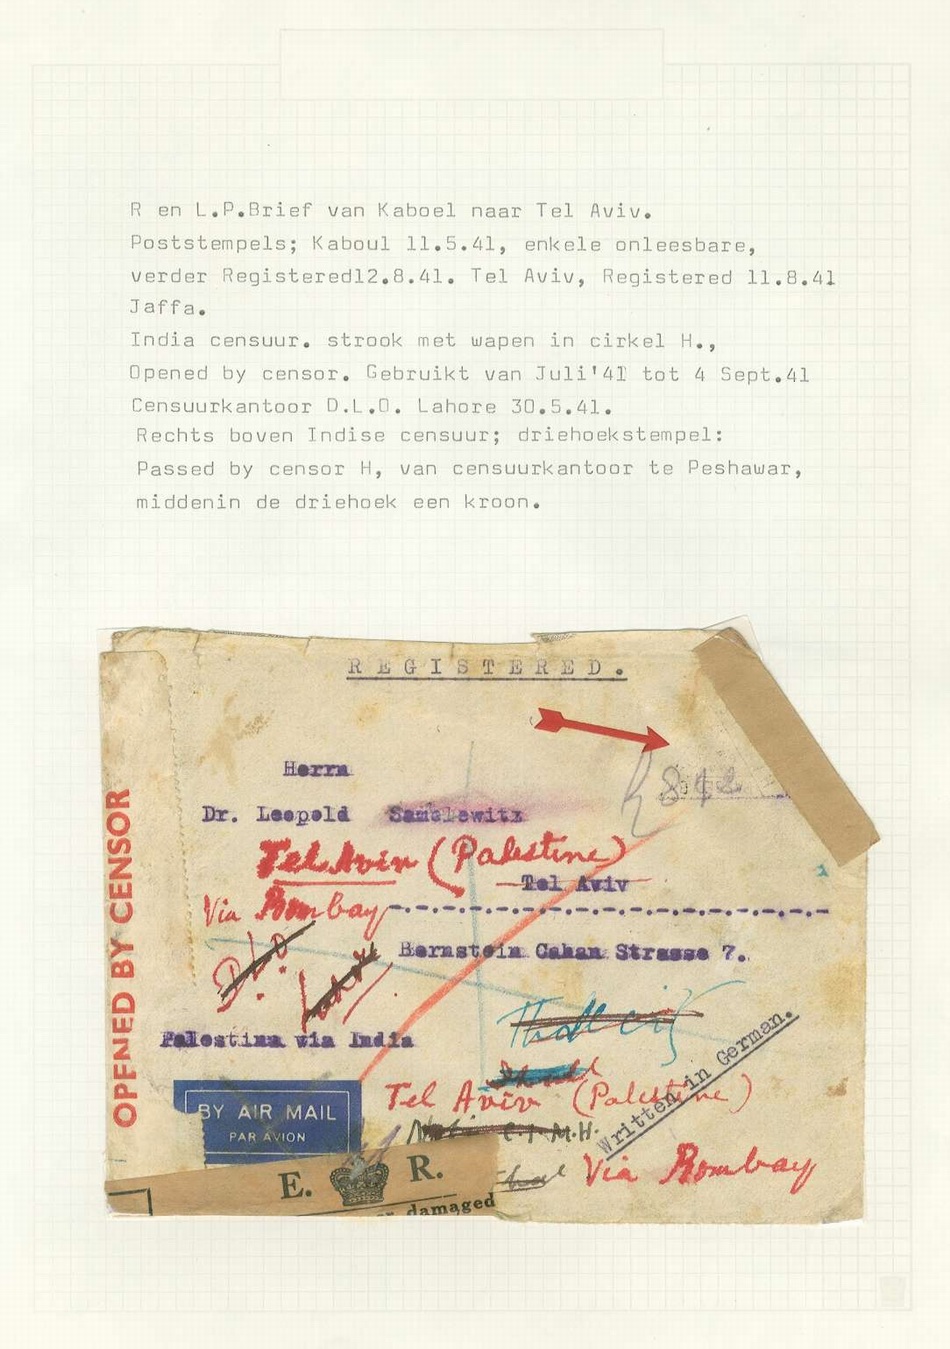 R en L.P.Brief van Kaboel naar Tel Aviv.
Poststempels; Kaboul 11.5.41, enkele onleesbare,
verder Registered12.8.41. Tel Aviv, Registered 11.8.41
Jaffa.
India censuur. strook met wapen in cirkel H.,
Opened by censor. Gebruikt van Juli'41 tot 4 Sept.41
Censuurkantoor D.L.O. Lahore 30.5.41.
Rechts boven Indise censuur; driehoekstempel:
Passed by censor H, van censuurkantoor te Peshawar,
middenin de driehoek een kroon.
REGISTERED.
Herrn
Dr. Leopold
Tel Aviv (Palestine)
Tel Aviv
Via Bombay
Bernstein Cahan Strasse 7.
D.L.O.
Lahore
Palestina via India
OPENED BY CENSOR
BY AIR MAIL
PAR AVION
Tel Aviv (Palestine)
Written in German.
Via Bombay
E. R.
damaged